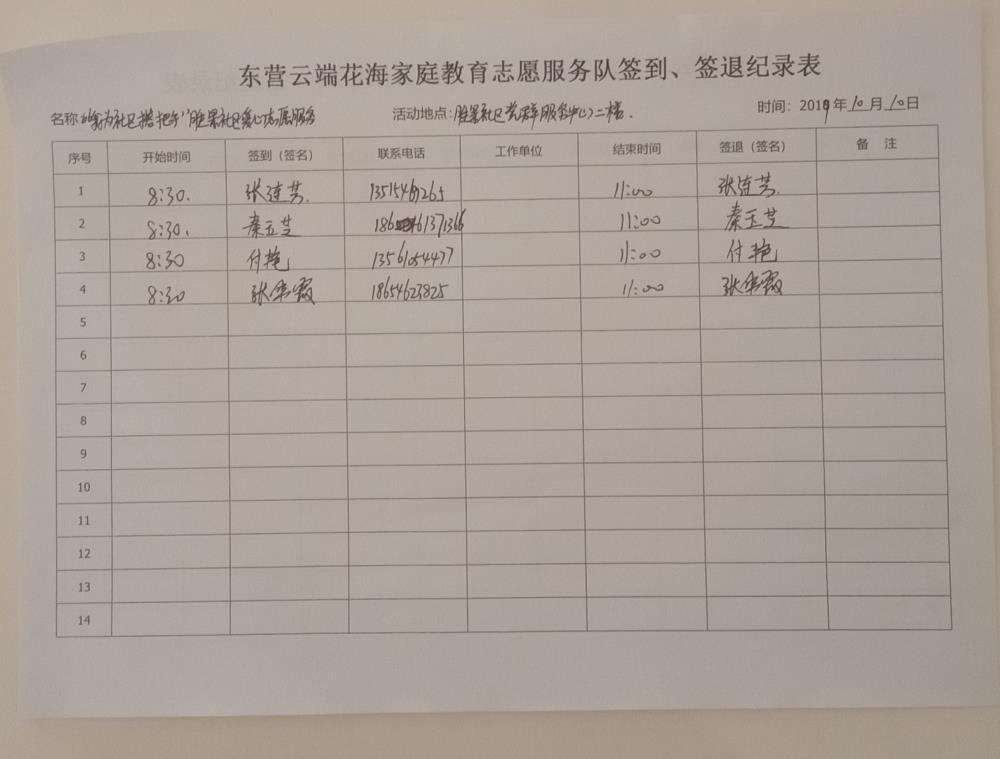 东营云端花海家庭教育志愿服务队签到、签退纪录表
名称:"我为社区搭把手"胜景社区爱心志愿服务 活动地点:胜景社区党群服务中心二楼. 时间:2019年10月10日
序号 开始时间 签到(签名) 联系电话 工作单位 结束时间 签退(签名) 备 注
1 8:30. 张连芳. 11:00 张连芳.
2 8:30. 秦玉芝 11:00 秦玉芝
3 8:30 付艳 13561054477 11:00 付艳
4 8:30 张华霞 18654623825 11:00 张华霞
5
6
7
8
9
10
11
12
13
14